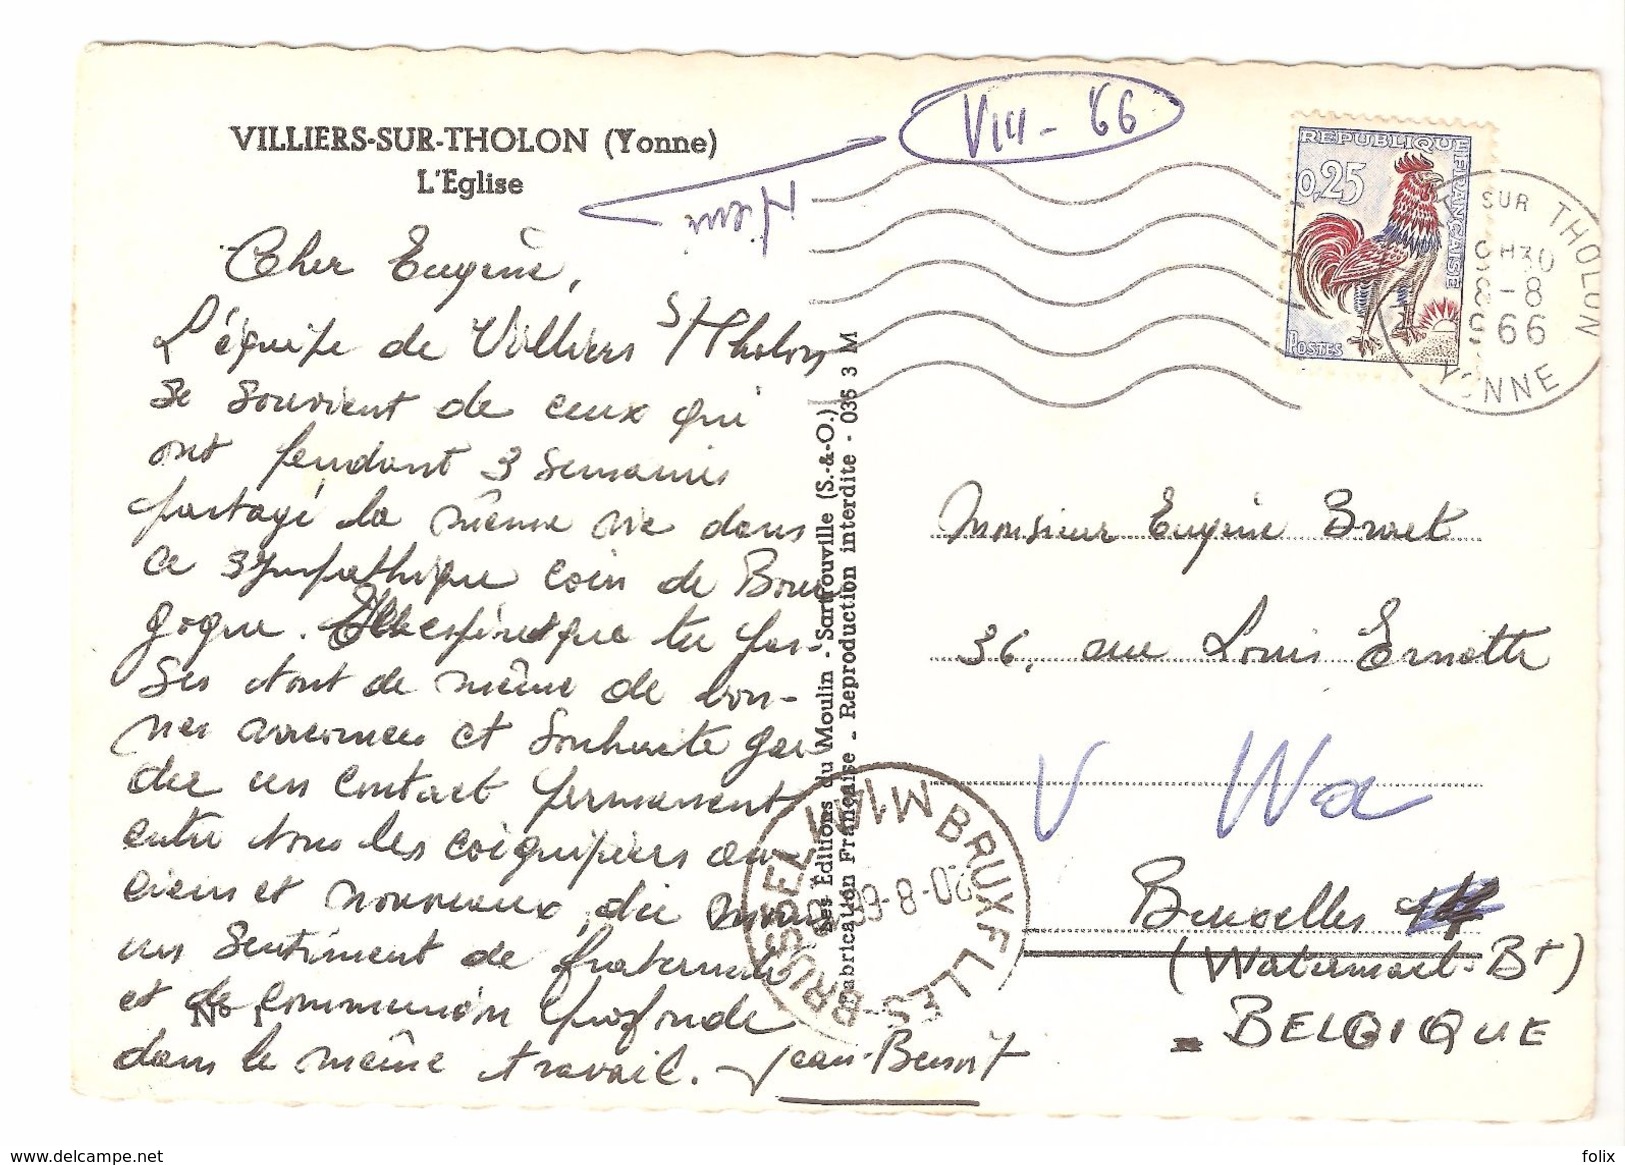 VILLIERS-SUR-THOLON (Yonne)
L'Eglise
VIII - 66
Cher Eugène,
L'équipe de Villiers s/Tholon
se souvient de ceux qui
ont pendant 3 semaines
partagé la même vie dans
ce sympathique coin de Bour
gogne. Elle espère que tu
de même de bon-
nes et souhaite gar
der un contact permanent
entre tous les coéquipiers an-
ciens et nouveaux,
un sentiment de fraternité
et de communion profonde
dans le même travail. Jean-Benoit
No
Les Éditions du Moulin - Sartrouville (S.-&-O.)
Fabrication Française - Reproduction interdite - 036 3 M
REPUBLIQUE FRANCAISE
0,25
POSTES
SUR THOLON
8-8
66
YONNE
Monsieur Eugène
36, rue Louis Ernotte
V Wa
Bruxelles
(Watermael-Bt)
BELGIQUE
BRUXELLES-BRUSSEL
folix
www.delcampe.net